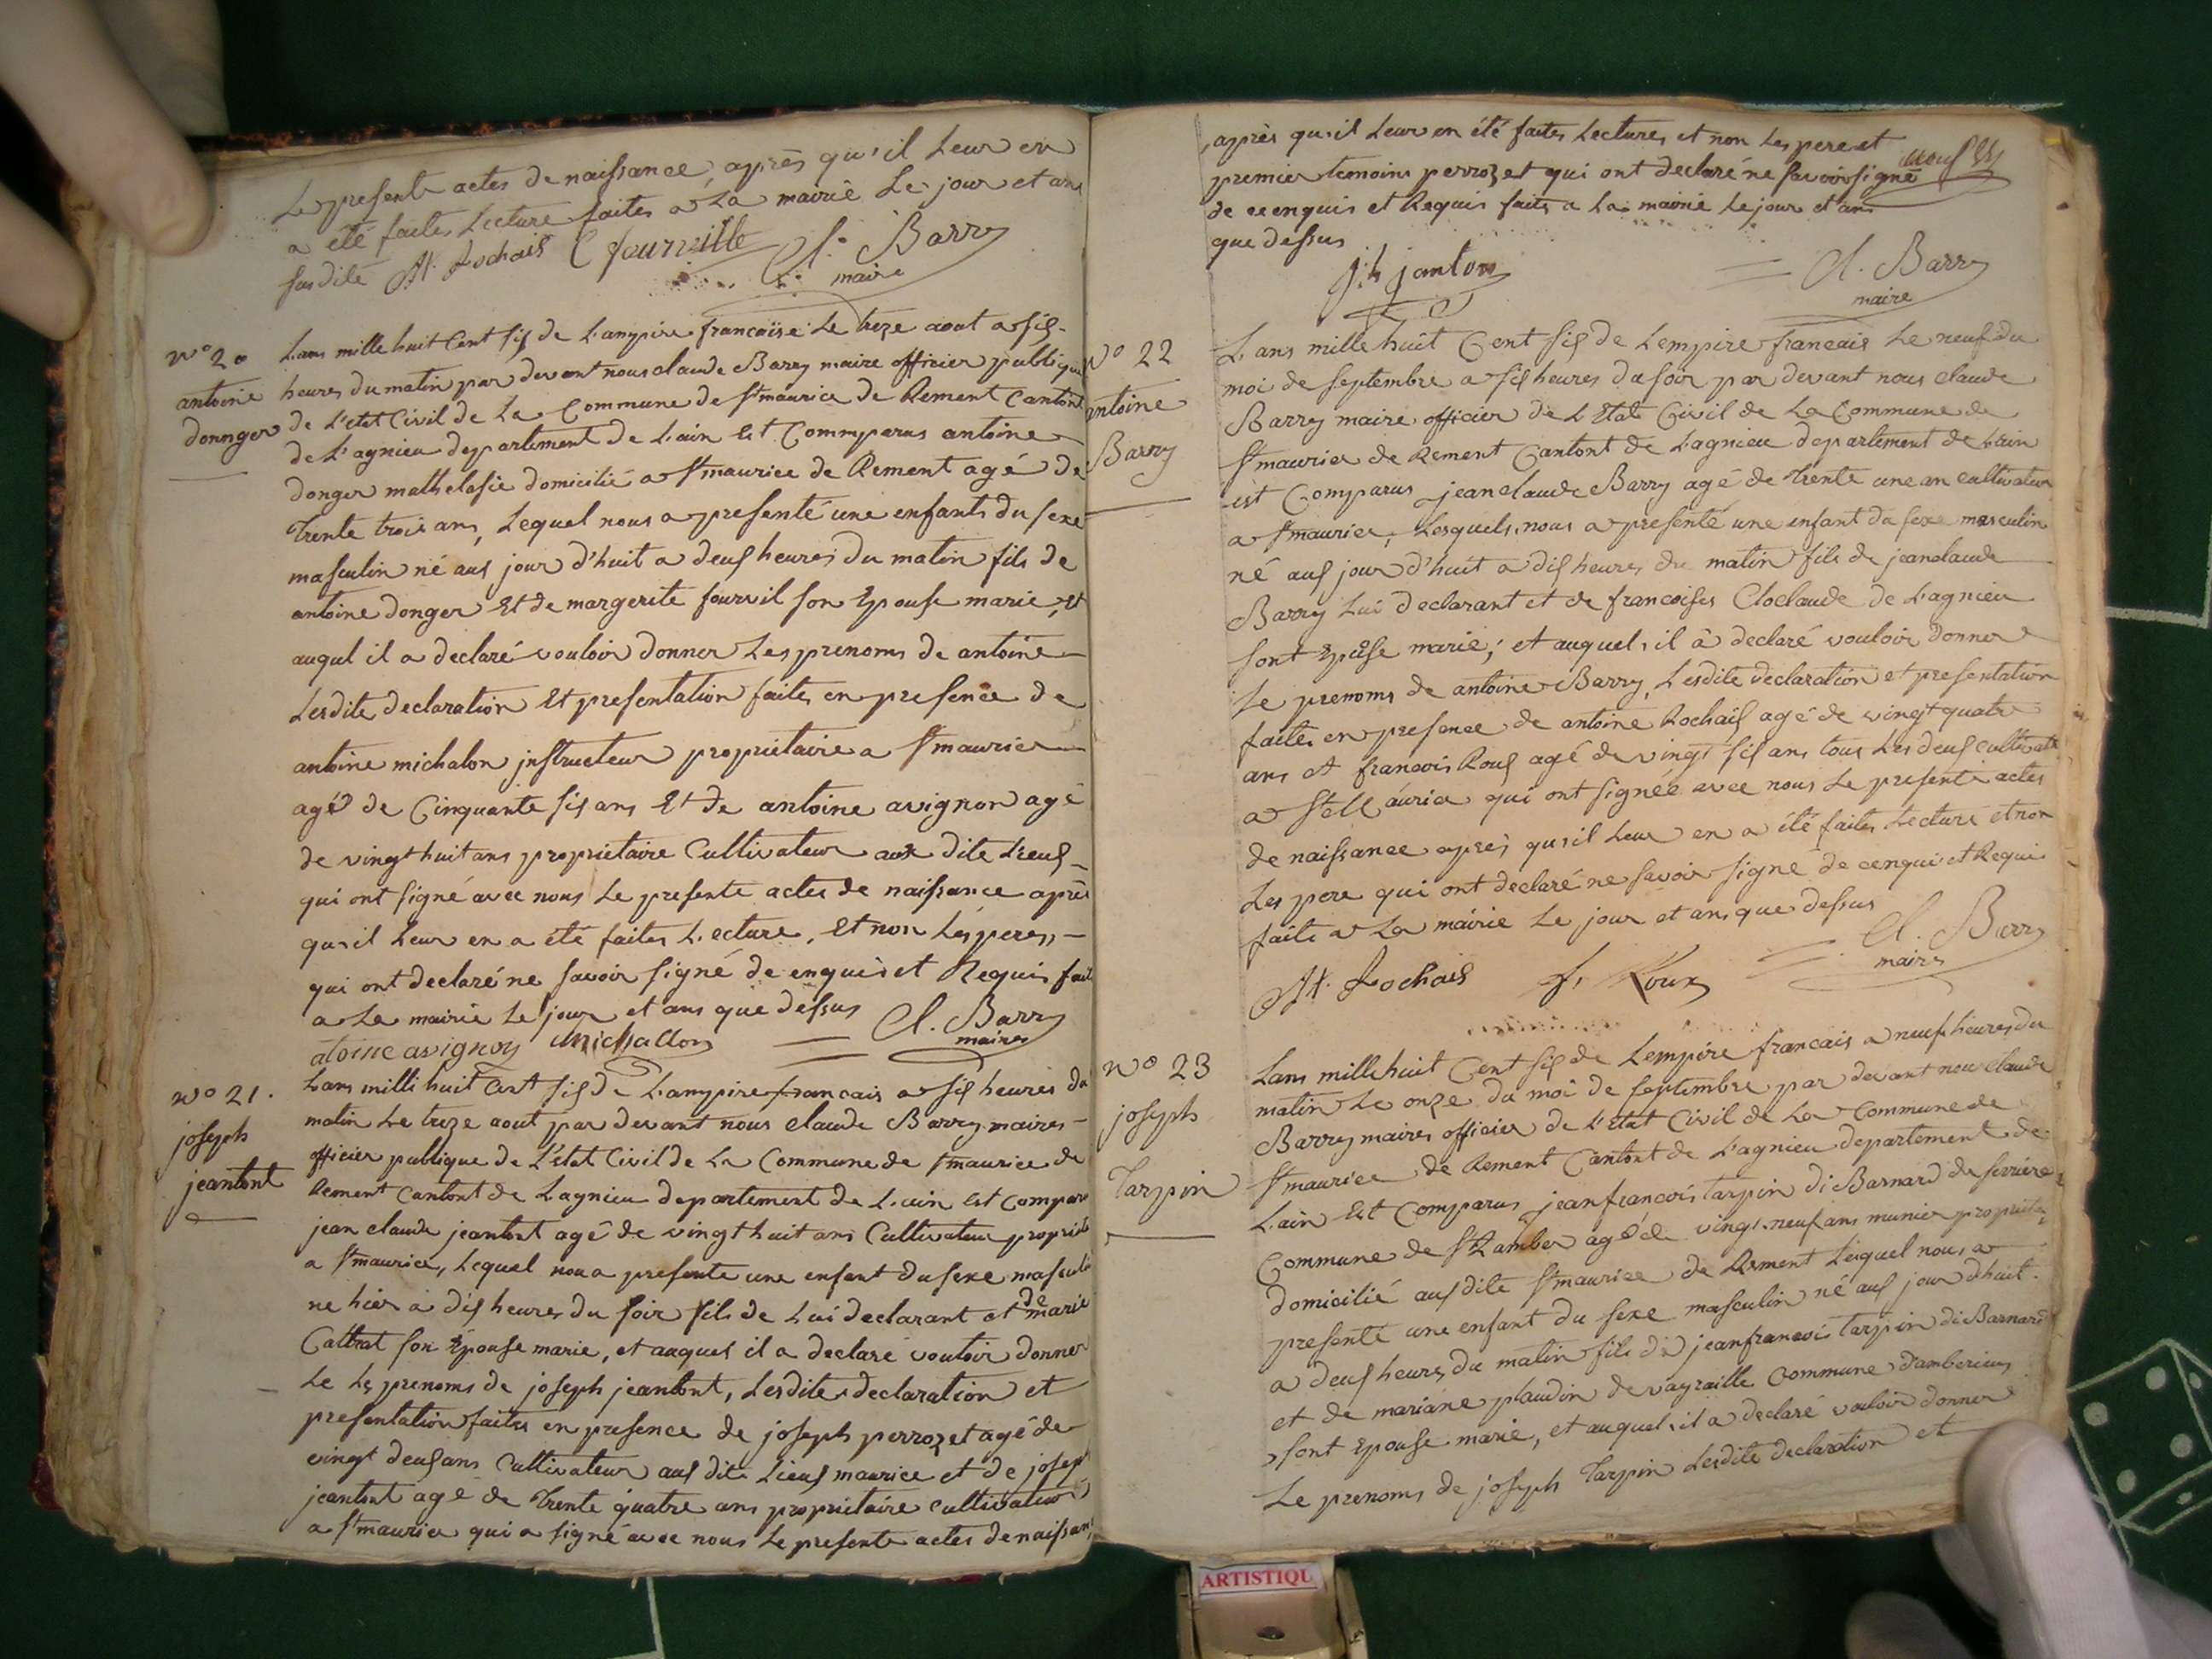 Le presente actes de naissance, après qu'il Leur en
a été faites Lecture faites a La mairie Le jour et ans
susdite At. Rochais C fourville Cl. Barry
maire
N° 20
antoine
donnger
L'ans mille huit Cent six de L'ampire francoise Le treze aout a six
heures du matin par devant nous claude Barry maire officier publique
de L'etat Civil de La Commune de St maurice de Rement Cantont
de L'agnieu departement de L'ain Est Commparus antoine
donger domicilié a St maurice de Rement agé de
Trente trois ans, Lequel nous a presenté une enfants du sexe
masculin né aux jour d'huit a deux heures du matin fils de
antoine donger Et de margerite fourvil son Epouse marie, Et
auqul il a declaré vouloir donner Les prenoms de antoine
Lesdite declaration Et presentation faites en presence de
antoine michalon jnstructeur propriétaire a St maurice
agé de Cinquante six ans Et de antoine avignon agé
de vingt huit ans proprietaire Cultivateur aux dite Lieux
qui ont signé avec nous Le presente actes de naissance après
qu'il Leur en a été faites Lecture, Et non Les peres
qui ont declaré ne savoir signé de enquis et Requis fait
a La mairie Le jour et ans que dessus Cl. Barry
maires
atoine avignon Michallon
N° 21.
joseph
jeantont
Lans milli huit Cent six de L'ampire francais a six heures du
matin Le treze aout par devant nous claude Barry maires
officier publique de L'etat Civil de La Commune de St maurice de
Rement Cantont de Lagnieu departement de L'ain Est Compare
jean claude jeantont agé de vingt huit ans Cultivateur
a St maurice, Lequel nous a presente une enfant du sexe
ne hier à dix heures du soir fils de Lui declarant et de marie
Cattrat son Epouse marie, et auquel il a declaré vouloir donner
Le Les prenoms de joseph jeantont, Lesdite declaration et
presentation faites en presence de joseph perrozet agé de
vingt deux ans Cultivateur aux dite Lieux maurice et de joseph
jeantont agé de Trente quatre ans proprietaire cultivateur
a St maurice qui a signé avec nous Le presente actes de naissans
après qu'il Leur en été faites Lecture, et non Les pere et
premier temoins perrozet qui ont declaré ne savoir signé
de ce enquis et Requis faits a La mairie Le jour et ans
que dessus
jh janton Cl. Barry
maire
N° 22
antoine
Barry
L'ans mille huit Cent six de Lempire francais Le neuf du
moi de septembre a six heures du soir par devant nous claude
Barry maire officier de L'Etat Civil de La Commune de
St maurice de Rement Cantont de L'agnieu departement de L'ain
est Comparus jean claude Barry agé de Trente une an cultivateur
a St maurice, Lesquels nous a presenté une enfant du sexe masculin
né aux jour d'huit a dix heures du matin fils de jean claude
Barry Lui declarant et de francoises Cloclaude de L'agnieu
sont Epouse marie; et auquel il à declaré vouloir donner
Le prenoms de antoine Barry, Lesdite declaration et presentation
faites en presence de antoine Rochaix agé de vingt quatre
ans et francois Roux agé de vingt six ans tous Les deux cultivat
a St Maurice qui ont signée avec nous Le presente actes
de naissance après qu'il Leur en a été faites Lecture et non
Les pere qui ont declaré ne savoir signé de cenquis et Requi
faite a La mairie Le jour et ans que dessus
At. Rochais f. Roux Cl. Barry
maire
N° 23
joseph
Tarpin
Lans mille huit Cent six de Lempire francais a neuf heures du
matin Le onze du moi de septembre par devant nou claude
Barry maires officier de L'Etat Civil de La Commune de
St maurice de Rement Cantont de L'agnieu departement de
L'ain Est Comparus jean francois tarpin di Barnard de serriere
Commune de St Ramber agé de vingt neuf ans munier
domicilié aux dite St maurice de Rement Lequel nous a
presenté une enfant du sexe masculin né aux jour d'huit
a deux heures du matin fils de jean francois tarpin di Barnard
et de mariane plaudin de vayraille Commune damberieux
sont Epouse marie, et auquel il a declaré vouloir donner
Le prenoms de joseph Tarpin Lesdite declaration et
ARTISTIQU